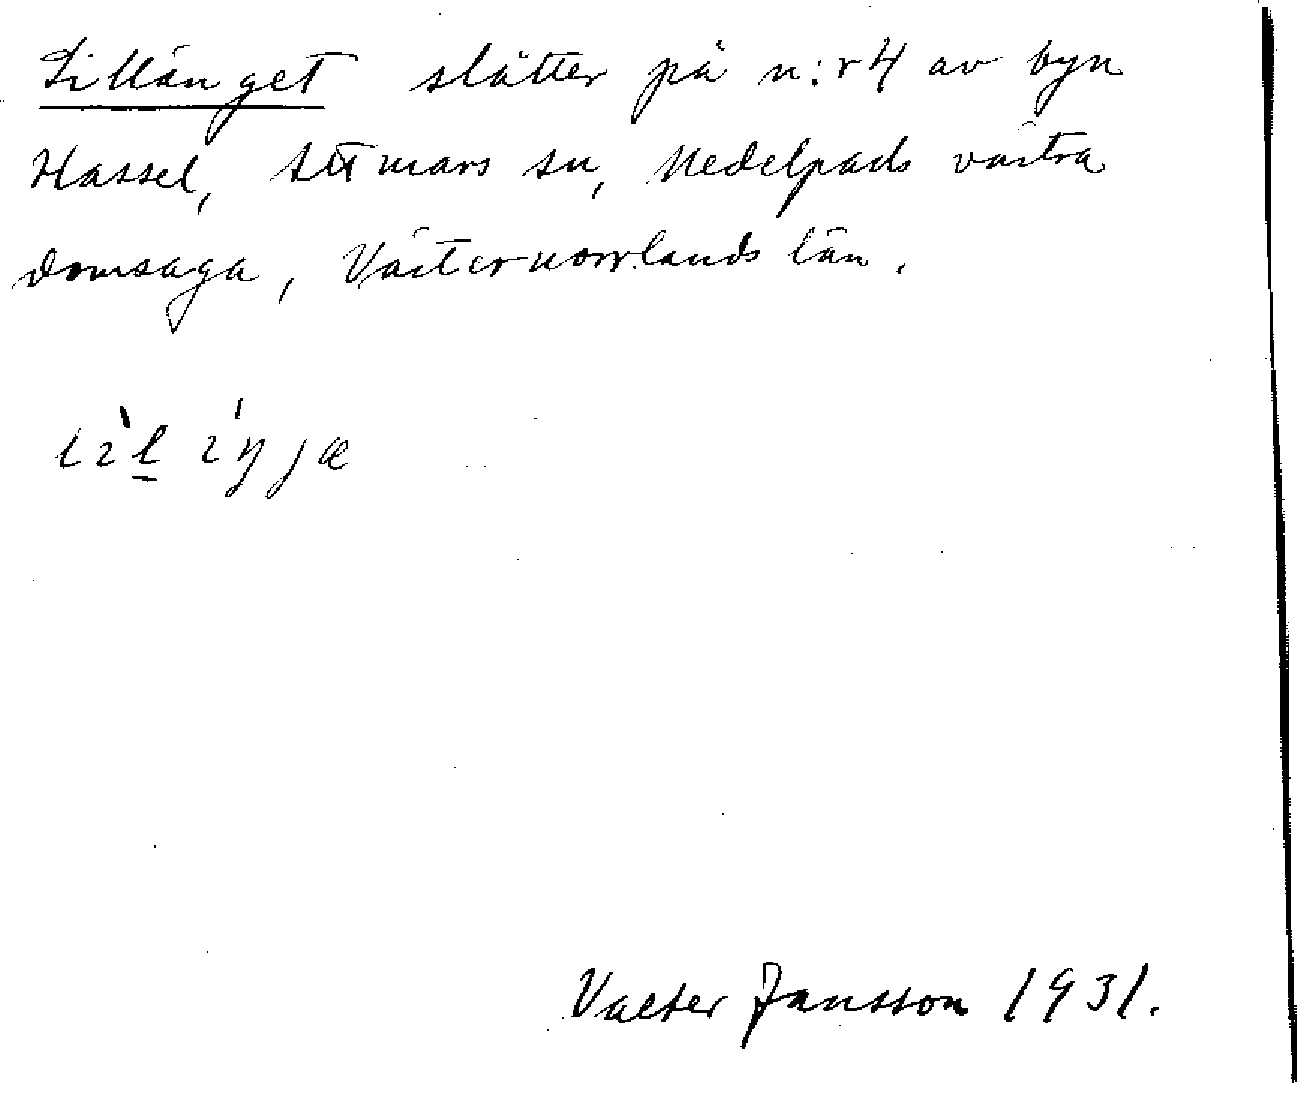 Lillänget slåtter på n:r 4 av byn
Hassel, Attmars sn, Medelpads västra
domsaga, Västernorrlands län.
Valter Jansson 1931.